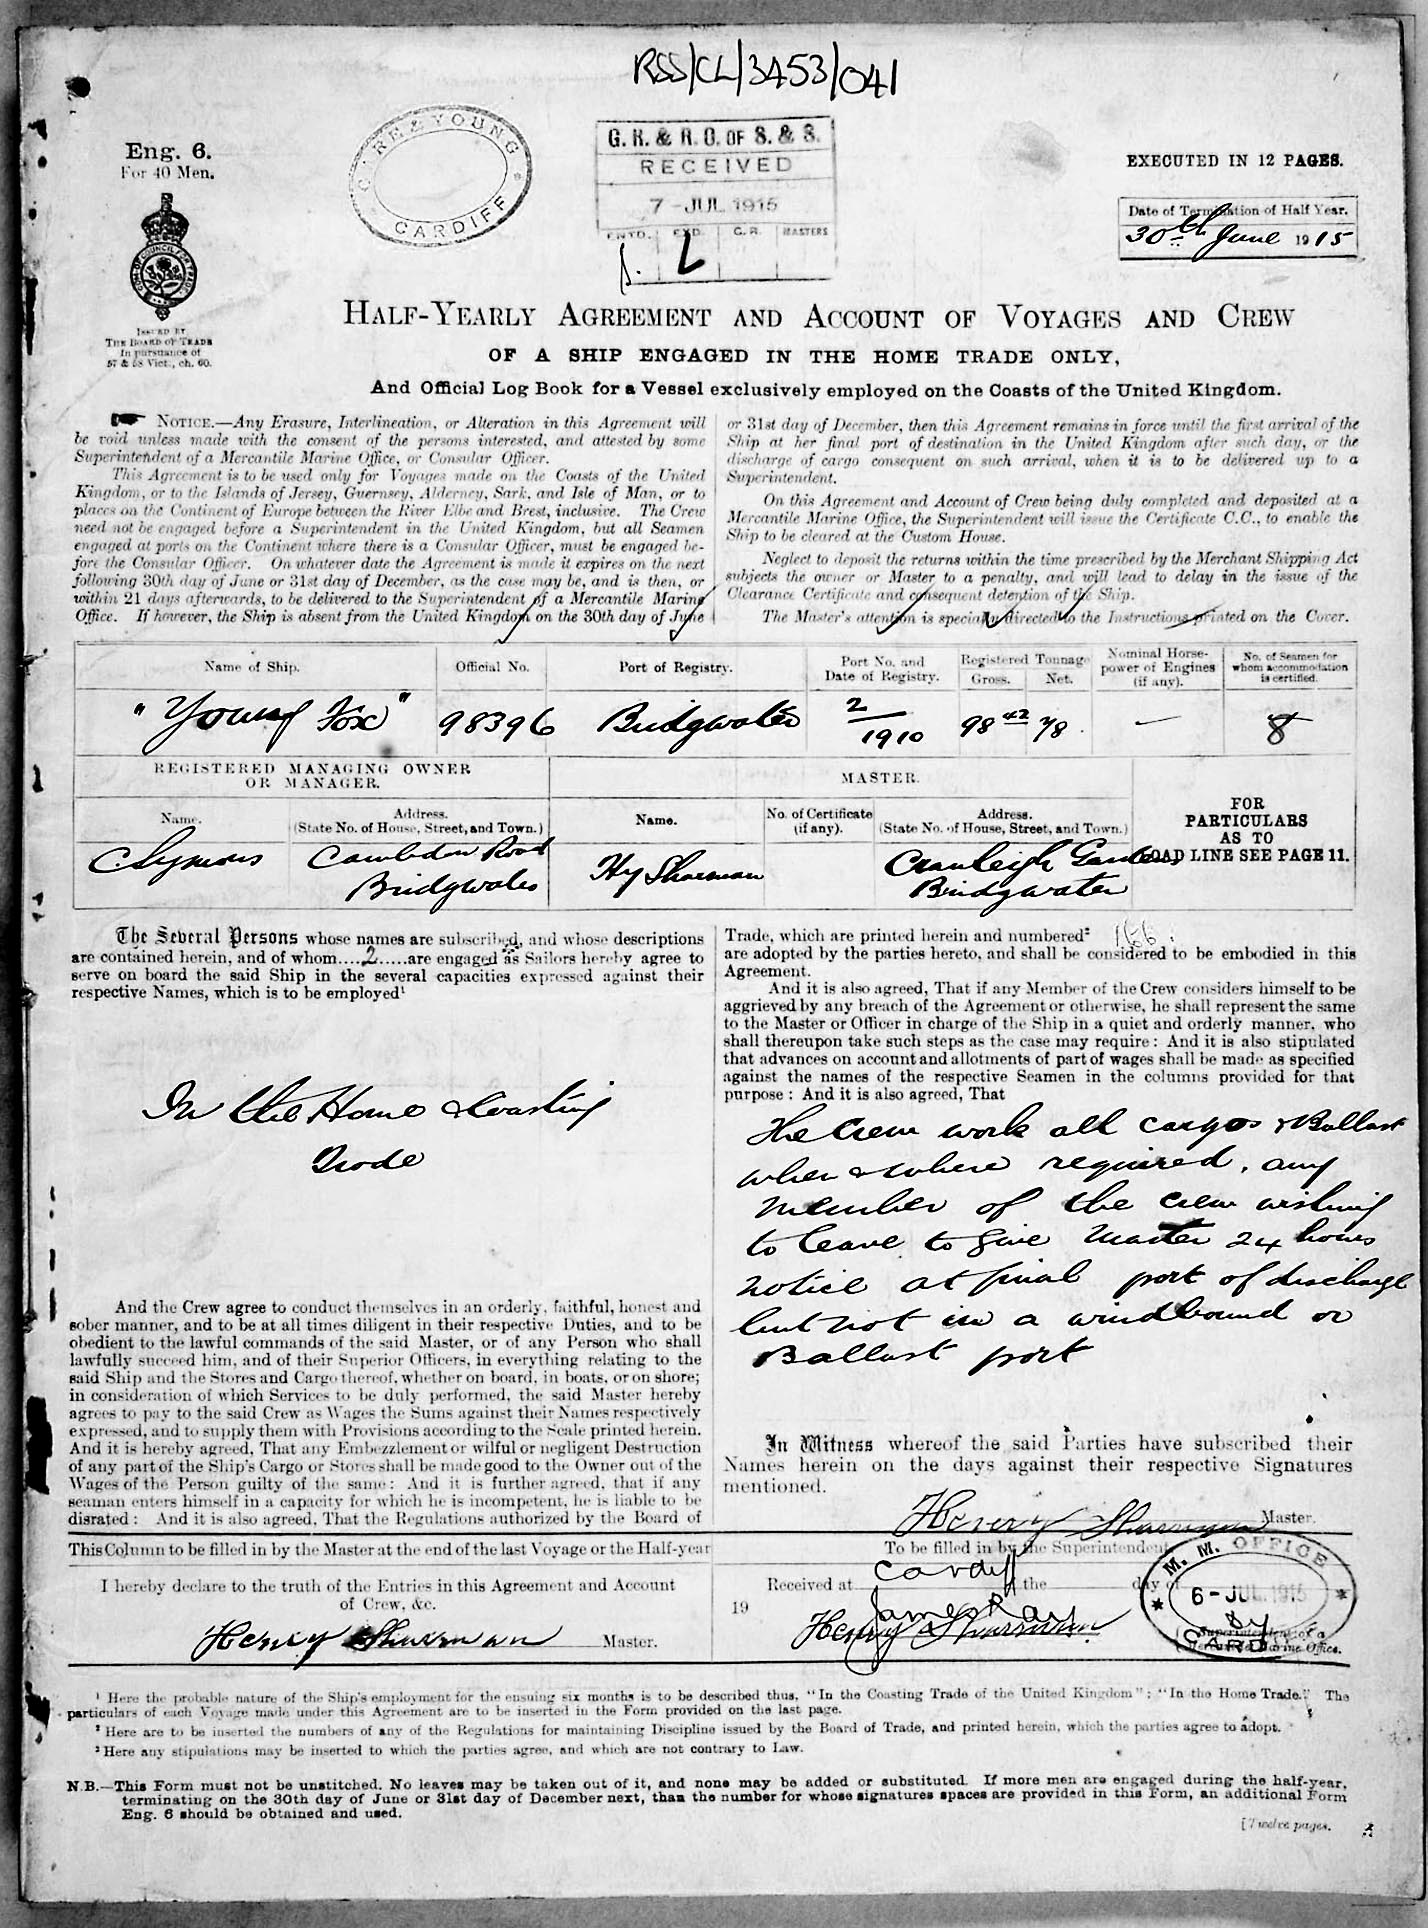 RSS/CL/3453/041
Eng. 6.
For 40 Men.
CLARE & YOUNG
CARDIFF
G. R. & R. O. OF S. & S.
RECEIVED
7 - JUL 1915
ENTD. EXD. C.R. MASTERS
EXECUTED IN 12 PAGES.
Date of Termination of Half Year.
30th June 1915
ISSUED BY
THE BOARD OF TRADE
In pursuance of
57 & 58 Vict., ch. 60.
HALF-YEARLY AGREEMENT AND ACCOUNT OF VOYAGES AND CREW
OF A SHIP ENGAGED IN THE HOME TRADE ONLY,
And Official Log Book for a Vessel exclusively employed on the Coasts of the United Kingdom.
NOTICE.—Any Erasure, Interlineation, or Alteration in this Agreement will
be void unless made with the consent of the persons interested, and attested by some
Superintendent of a Mercantile Marine Office, or Consular Officer.
This Agreement is to be used only for Voyages made on the Coasts of the United
Kingdom, or to the Islands of Jersey, Guernsey, Alderney, Sark, and Isle of Man, or to
places on the Continent of Europe between the River Elbe and Brest, inclusive. The Crew
need not be engaged before a Superintendent in the United Kingdom, but all Seamen
engaged at ports on the Continent where there is a Consular Officer, must be engaged be-
fore the Consular Officer. On whatever date the Agreement is made it expires on the next
following 30th day of June or 31st day of December, as the case may be, and is then, or
within 21 days afterwards, to be delivered to the Superintendent of a Mercantile Marine
Office. If however, the Ship is absent from the United Kingdom on the 30th day of June
or 31st day of December, then this Agreement remains in force until the first arrival of the
Ship at her final port of destination in the United Kingdom after such day, or the
discharge of cargo consequent on such arrival, when it is to be delivered up to a
Superintendent.
On this Agreement and Account of Crew being duly completed and deposited at a
Mercantile Marine Office, the Superintendent will issue the Certificate C.C., to enable the
Ship to be cleared at the Custom House.
Neglect to deposit the returns within the time prescribed by the Merchant Shipping Act
subjects the owner or Master to a penalty, and will lead to delay in the issue of the
Clearance Certificate and consequent detention of the Ship.
The Master's attention is specially directed to the Instructions printed on the Cover.
Name of Ship. Official No. Port of Registry. Port No. and Date of Registry. Registered Tonnage Gross. Net. Nominal Horse-power of Engines (if any). No. of Seamen for whom accommodation is certified.
"Young Fox" 98396 Bridgwater 2/1910 98 42 78 — 8
REGISTERED MANAGING OWNER
OR MANAGER.
MASTER.
Name. Address. (State No. of House, Street, and Town.) Name. No. of Certificate (if any). Address. (State No. of House, Street, and Town.)
FOR
PARTICULARS
AS TO
LOAD LINE SEE PAGE 11.
C Symons Cambdon Road Hy Sharman Cranleigh Gardens
Bridgwater Bridgwater
The Several Persons whose names are subscribed, and whose descriptions
are contained herein, and of whom....2.....are engaged as Sailors hereby agree to
serve on board the said Ship in the several capacities expressed against their
respective Names, which is to be employed¹
In the Home & Coasting
Trade
And the Crew agree to conduct themselves in an orderly, faithful, honest and
sober manner, and to be at all times diligent in their respective Duties, and to be
obedient to the lawful commands of the said Master, or of any Person who shall
lawfully succeed him, and of their Superior Officers, in everything relating to the
said Ship and the Stores and Cargo thereof, whether on board, in boats, or on shore;
in consideration of which Services to be duly performed, the said Master hereby
agrees to pay to the said Crew as Wages the Sums against their Names respectively
expressed, and to supply them with Provisions according to the Scale printed herein.
And it is hereby agreed, That any Embezzlement or wilful or negligent Destruction
of any part of the Ship's Cargo or Stores shall be made good to the Owner out of the
Wages of the Person guilty of the same: And it is further agreed, that if any
seaman enters himself in a capacity for which he is incompetent, he is liable to be
disrated: And it is also agreed, That the Regulations authorized by the Board of
Trade, which are printed herein and numbered²
are adopted by the parties hereto, and shall be considered to be embodied in this
Agreement.
And it is also agreed, That if any Member of the Crew considers himself to be
aggrieved by any breach of the Agreement or otherwise, he shall represent the same
to the Master or Officer in charge of the Ship in a quiet and orderly manner, who
shall thereupon take such steps as the case may require: And it is also stipulated
that advances on account and allotments of part of wages shall be made as specified
against the names of the respective Seamen in the columns provided for that
purpose: And it is also agreed, That
The Crew work all cargos & Ballast
when & where required, any
member of the crew wishing
to leave to give Master 24 hours
notice at final port of discharge
but not in a windbound or
Ballast port
In Witness whereof the said Parties have subscribed their
Names herein on the days against their respective Signatures
mentioned.
Henry Sharman Master.
This Column to be filled in by the Master at the end of the last Voyage or the Half-year
I hereby declare to the truth of the Entries in this Agreement and Account
of Crew, &c.
Henry Sharman Master.
To be filled in by the Superintendent
Received at Cardiff the day of
19
Henry Sharman
M. M. OFFICE
6 - JUL 1915
CARDIFF
Superintendent of a
Mercantile Marine Office.
¹ Here the probable nature of the Ship's employment for the ensuing six months is to be described thus, "In the Coasting Trade of the United Kingdom"; "In the Home Trade." The
particulars of each Voyage made under this Agreement are to be inserted in the Form provided on the last page.
² Here are to be inserted the numbers of any of the Regulations for maintaining Discipline issued by the Board of Trade, and printed herein, which the parties agree to adopt.
³ Here any stipulations may be inserted to which the parties agree, and which are not contrary to Law.
N.B.—This Form must not be unstitched. No leaves may be taken out of it, and none may be added or substituted. If more men are engaged during the half-year,
terminating on the 30th day of June or 31st day of December next, than the number for whose signatures spaces are provided in this Form, an additional Form
Eng. 6 should be obtained and used.
[Twelve pages.